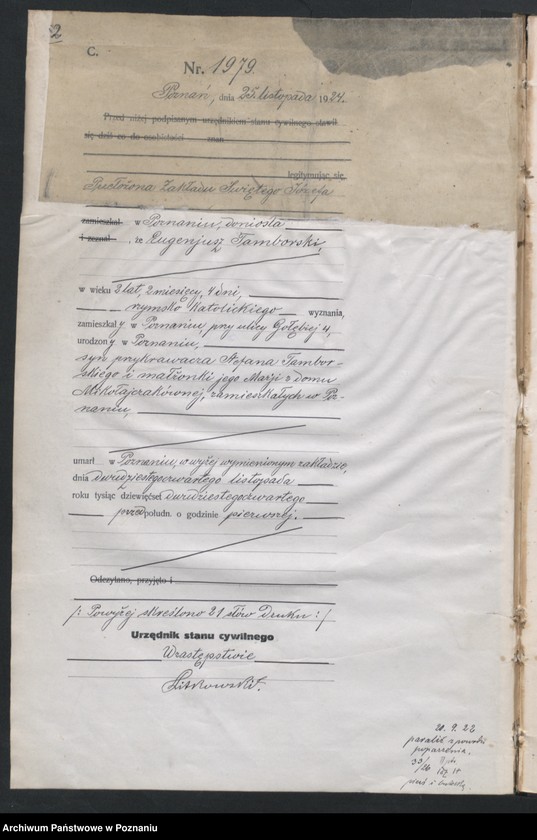 2
C.
Nr. 1979.
Poznań, dnia 25. listopada 1924.
Przed niżej podpisanym urzędnikiem stanu cywilnego stawił
się dziś co do osobistości znan
legitymując się
Przełożona Zakładu Świętego Józefa
zamieszkał w Poznaniu, doniosła
i zeznał, że Eugenjusz Tamborski,
w wieku 2 lat, 2 miesięcy, 4 dni,
rzymsko katolickiego wyznania,
zamieszkały w Poznaniu, przy ulicy Gołębiej 4,
urodzony w Poznaniu,
syn przykrawacza Stefana Tambor-
skiego i małżonki jego Marji z domu
Mikołajczakównej, zamieszkałych w Po-
znaniu,
umarł w Poznaniu, w wyżej wymienionym zakładzie,
dnia dwudziestegoczwartego listopada
roku tysiąc dziewięćset dwudziestegoczwartego
przedpołudn. o godzinie pierwszej.
Odczytano, przyjęto i
/: Powyżej skreślono 21 słów druku :/
Urzędnik stanu cywilnego
W zastępstwie
20. 9. 22
poparzenia.
Archiwum Państwowe w Poznaniu